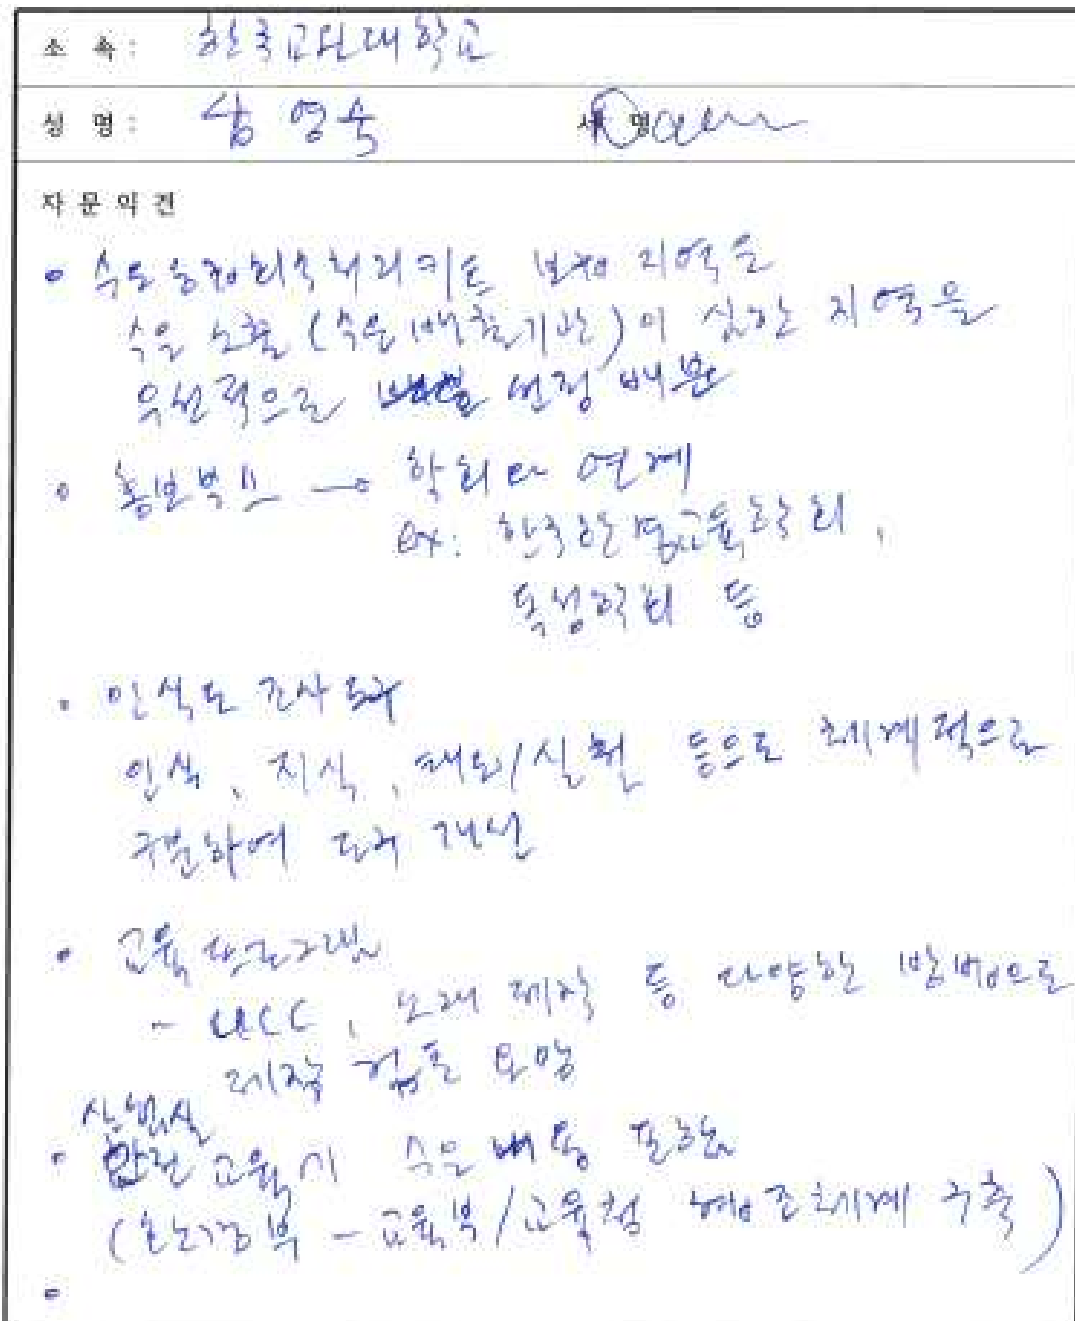 소 속 : 한국교원대학교
성 명 : 심영숙 서 명
자 문 의 견
• 수은 회수처리키트 배포 지역은
수은 노출 (수은 배출기관)이 심한 지역을
우선적으로 선정 배분
• 홍보박스 → 학회와 연계
ex: 한국환경교육학회,
독성학회 등
• 인식도 조사 도구
인식, 지식, 태도/실천 등으로 체계적으로
구분하여 도구 개선
• 교육프로그램
- UCC, 노래 제작 등 다양한 방법으로
제작 검토 요망
실험실
• 안전교육시 수은 내용 포함
(환경부 - 교육부/교육청 협조체계 구축)
•